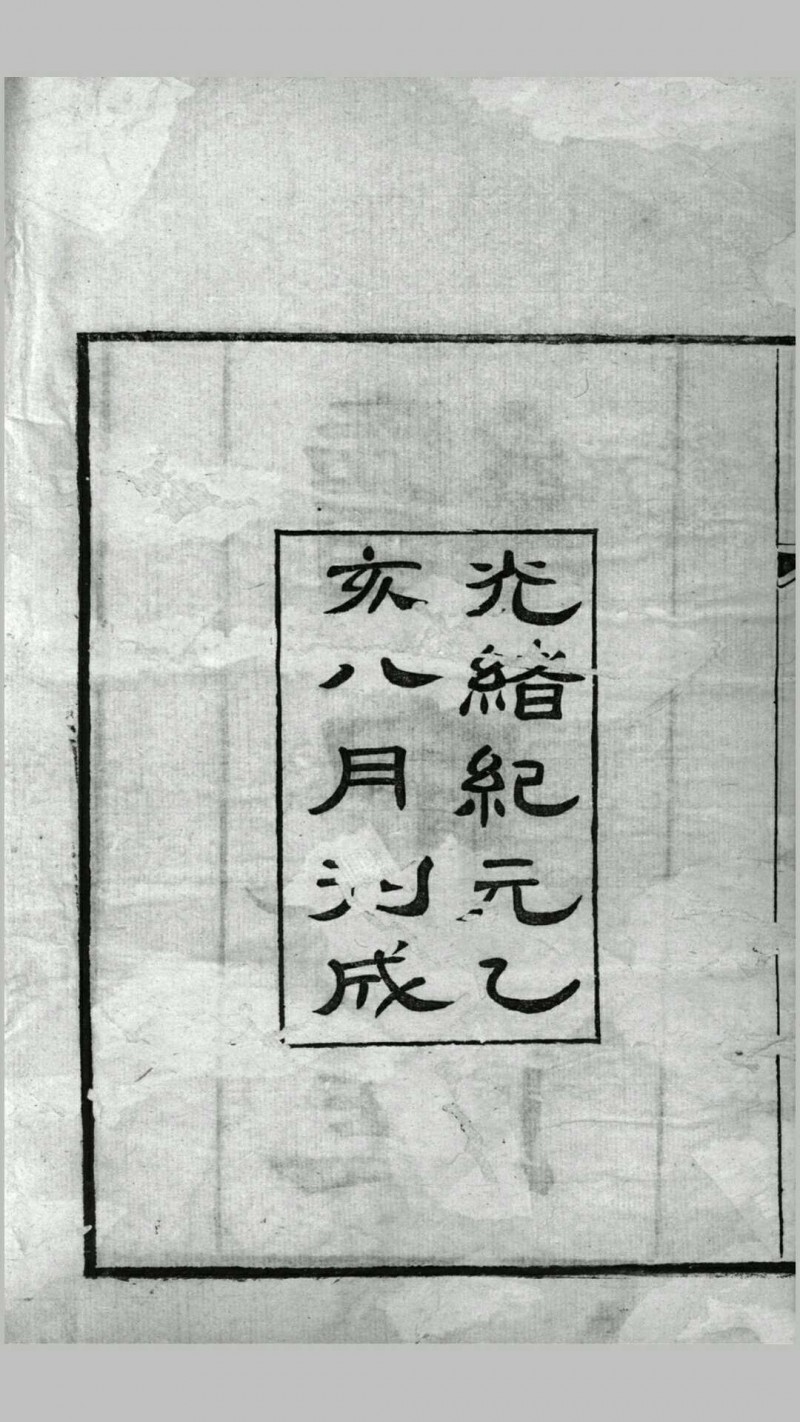 光緒紀元乙
亥八月刻成